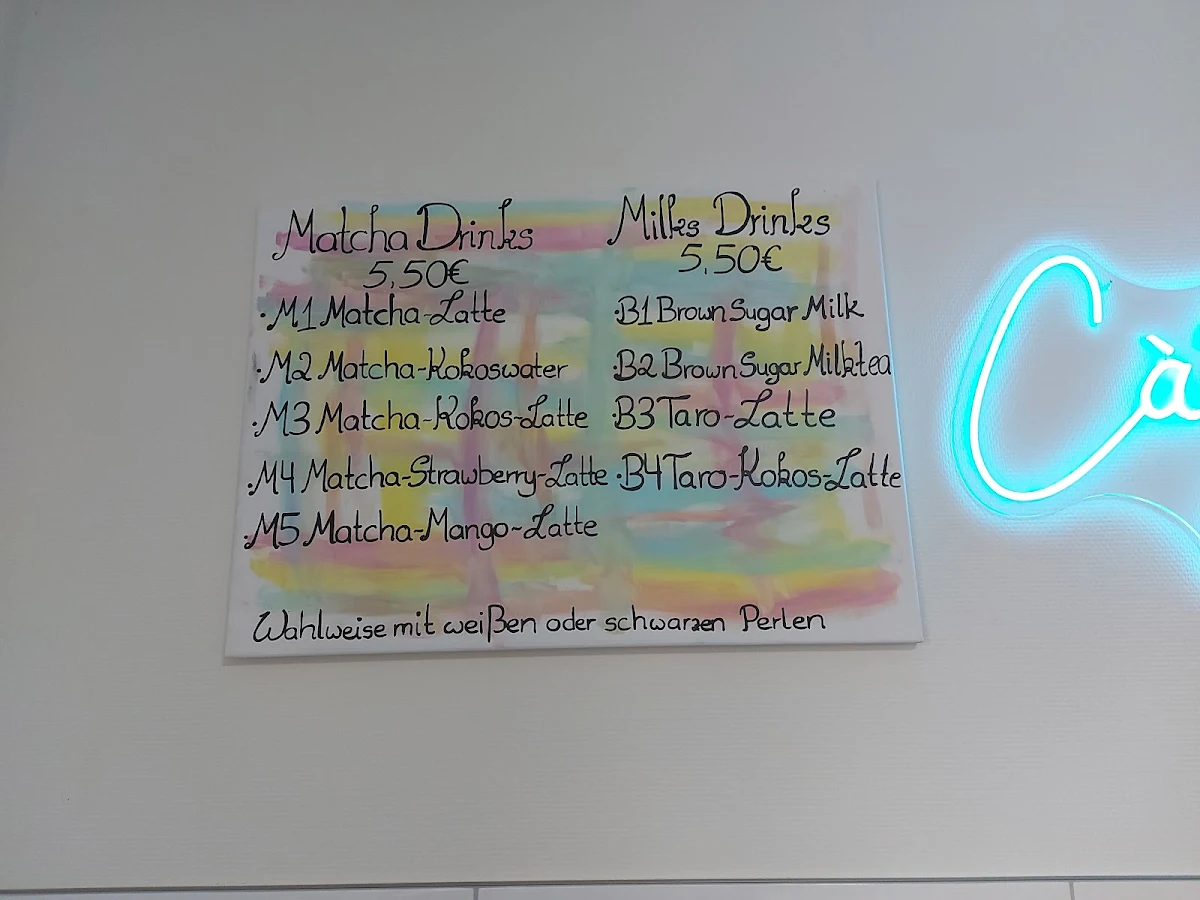 Matcha Drinks
5,50€
· M1 Matcha-Latte
· M2 Matcha-Kokoswater
· M3 Matcha-Kokos-Latte
· M4 Matcha-Strawberry-Latte
· M5 Matcha-Mango-Latte
Milks Drinks
5,50€
· B1 Brown Sugar Milk
· B2 Brown Sugar Milktea
· B3 Taro-Latte
· B4 Taro-Kokos-Latte
Wahlweise mit weißen oder schwarzen Perlen
Cà